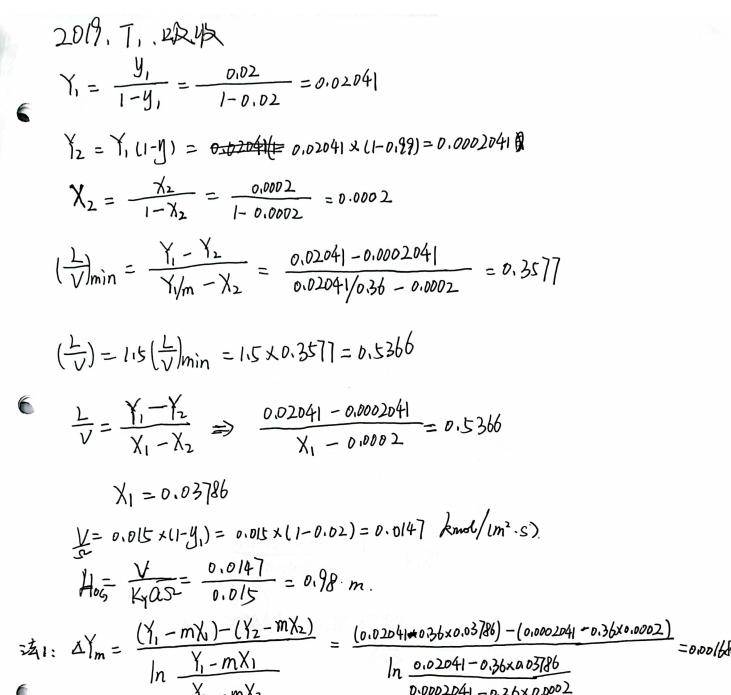 2019. T1. 吸收
Y₁ = y₁/(1-y₁) = 0.02/(1-0.02) = 0.02041
Y₂ = Y₁(1-η) = 0.02041×(1-0.99) = 0.0002041
X₂ = x₂/(1-x₂) = 0.0002/(1-0.0002) = 0.0002
(L/V)min = (Y₁-Y₂)/(Y₁/m - X₂) = (0.02041-0.0002041)/(0.02041/0.36 - 0.0002) = 0.3577
(L/V) = 1.5(L/V)min = 1.5×0.3577 = 0.5366
L/V = (Y₁-Y₂)/(X₁-X₂) ⇒ (0.02041-0.0002041)/(X₁-0.0002) = 0.5366
X₁ = 0.03786
V/Ω = 0.015×(1-y₁) = 0.015×(1-0.02) = 0.0147 kmol/(m²·s).
H_OG = V/(K_Y aΩ) = 0.0147/0.015 = 0.98 m.
法1: ΔYm = ((Y₁-mX₁)-(Y₂-mX₂))/(ln (Y₁-mX₁)/(Y₂-mX₂)) = ((0.02041-0.36×0.03786)-(0.0002041-0.36×0.0002))/(ln (0.02041-0.36×0.03786)/(0.0002041-0.36×0.0002)) = 0.00168